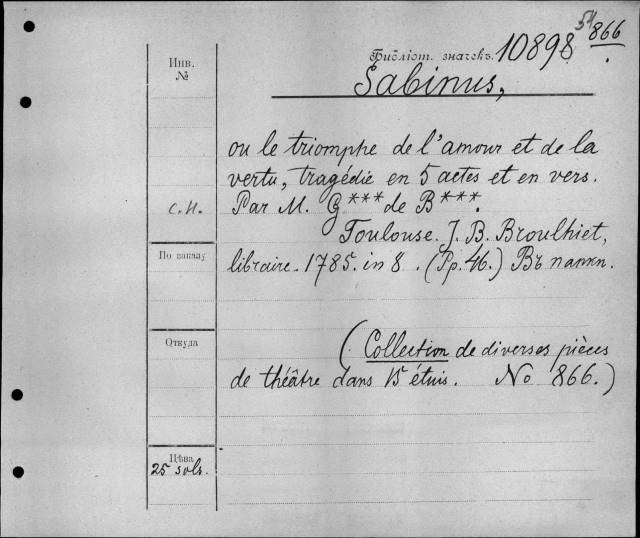 54 866
Библіот. значекъ. 10898
Инв.
№
Sabinus,
ou le triomphe de l'amour et de la
vertu, tragédie en 5 actes et en vers.
С.Н. Par M. G*** de B***.
Toulouse. J. B. Broulhiet,
По заказу
libraire. 1785. in 8. (Pp. 46.) Въ папкѣ.
Откуда
(Collection de diverses pièces
de théâtre dans 15 étuis. No 866.)
Цѣна
25 sols.